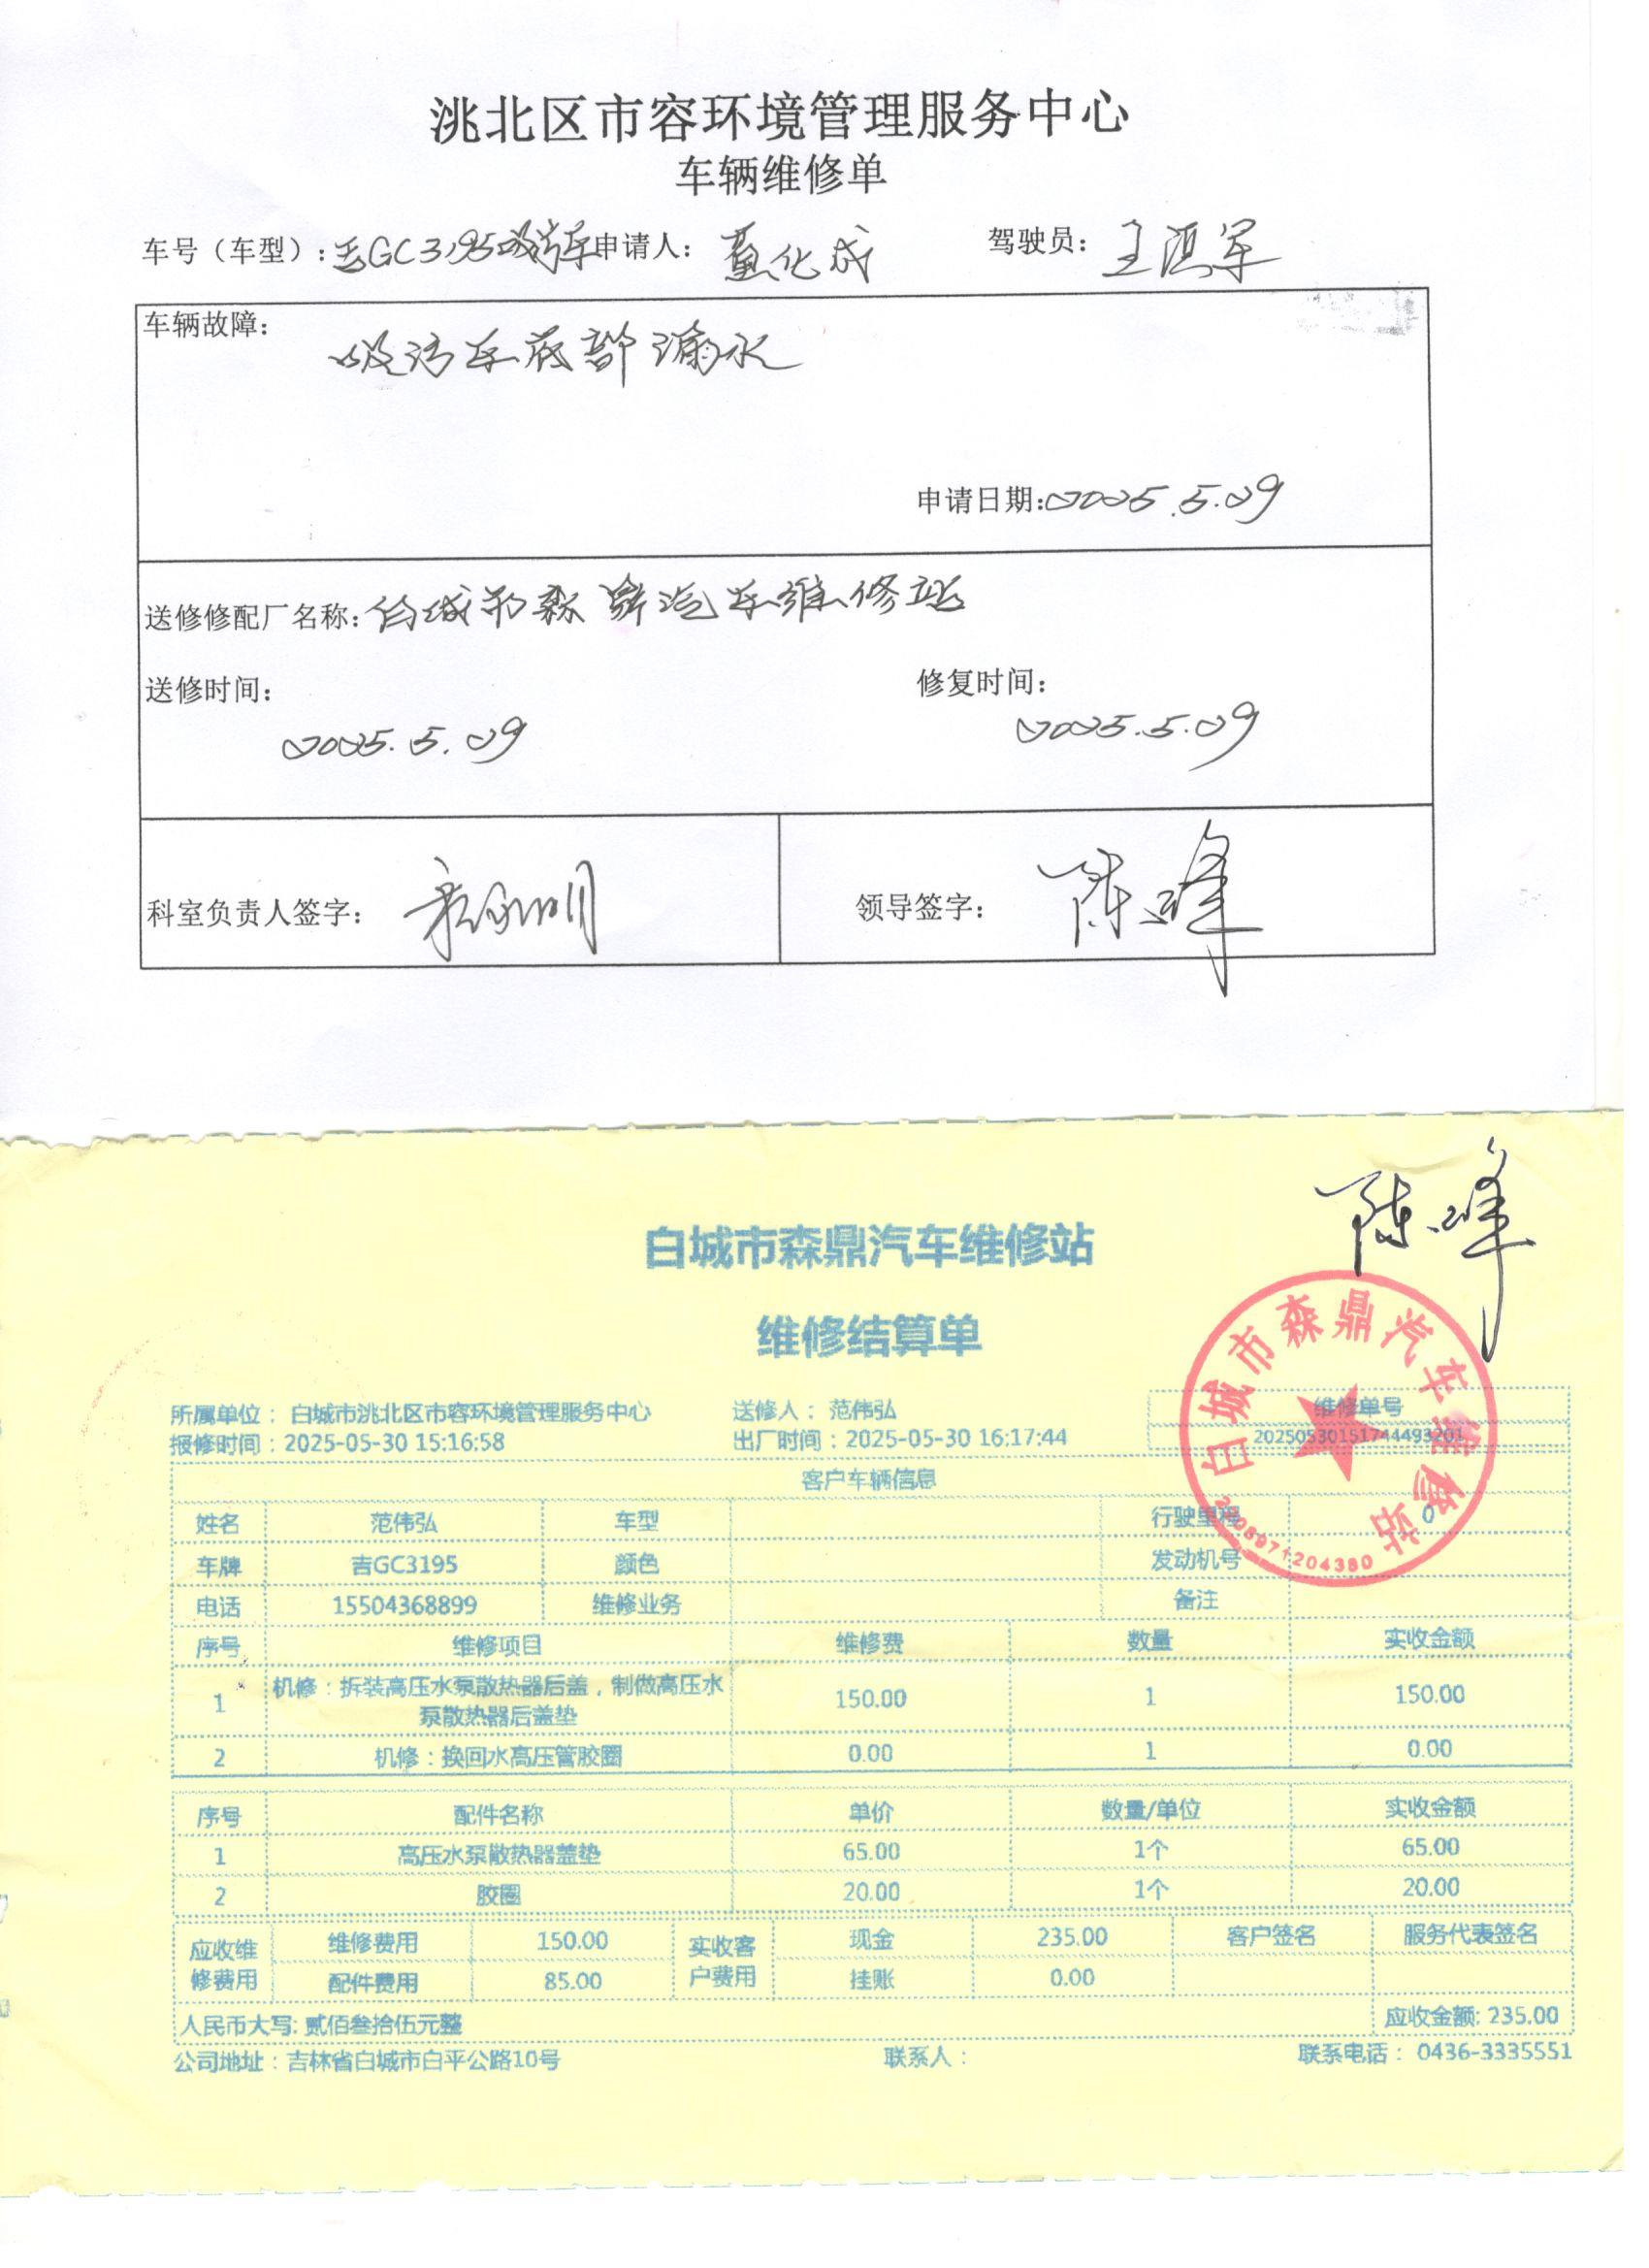 洮北区市容环境管理服务中心
车辆维修单
车号（车型）：吉GC3195吸污车 申请人：董化成 驾驶员：王洪军
车辆故障：
吸污车底部漏水
申请日期：2025.5.29
送修修配厂名称：白城市森鼎汽车维修站
送修时间： 修复时间：
2025.5.29 2025.5.29
科室负责人签字： 领导签字：陈峰
陈峰
白城市森鼎汽车维修站
维修结算单
所属单位： 白城市洮北区市容环境管理服务中心 送修人： 范伟弘 维修单号
报修时间：2025-05-30 15:16:58 出厂时间：2025-05-30 16:17:44 20250530151744493201
客户车辆信息
姓名 范伟弘 车型 行驶里程 0
车牌 吉GC3195 颜色 发动机号
电话 15504368899 维修业务 备注
序号 维修项目 维修费 数量 实收金额
1 机修：拆装高压水泵散热器后盖，制做高压水泵散热器后盖垫 150.00 1 150.00
2 机修：换回水高压管胶圈 0.00 1 0.00
序号 配件名称 单价 数量/单位 实收金额
1 高压水泵散热器盖垫 65.00 1个 65.00
2 胶圈 20.00 1个 20.00
应收维修费用 维修费用 150.00 实收客户费用 现金 235.00 客户签名 服务代表签名
配件费用 85.00 挂账 0.00
人民币大写: 贰佰叁拾伍元整 应收金额: 235.00
公司地址：吉林省白城市白平公路10号 联系人： 联系电话： 0436-3335551
白城市森鼎汽车维修站